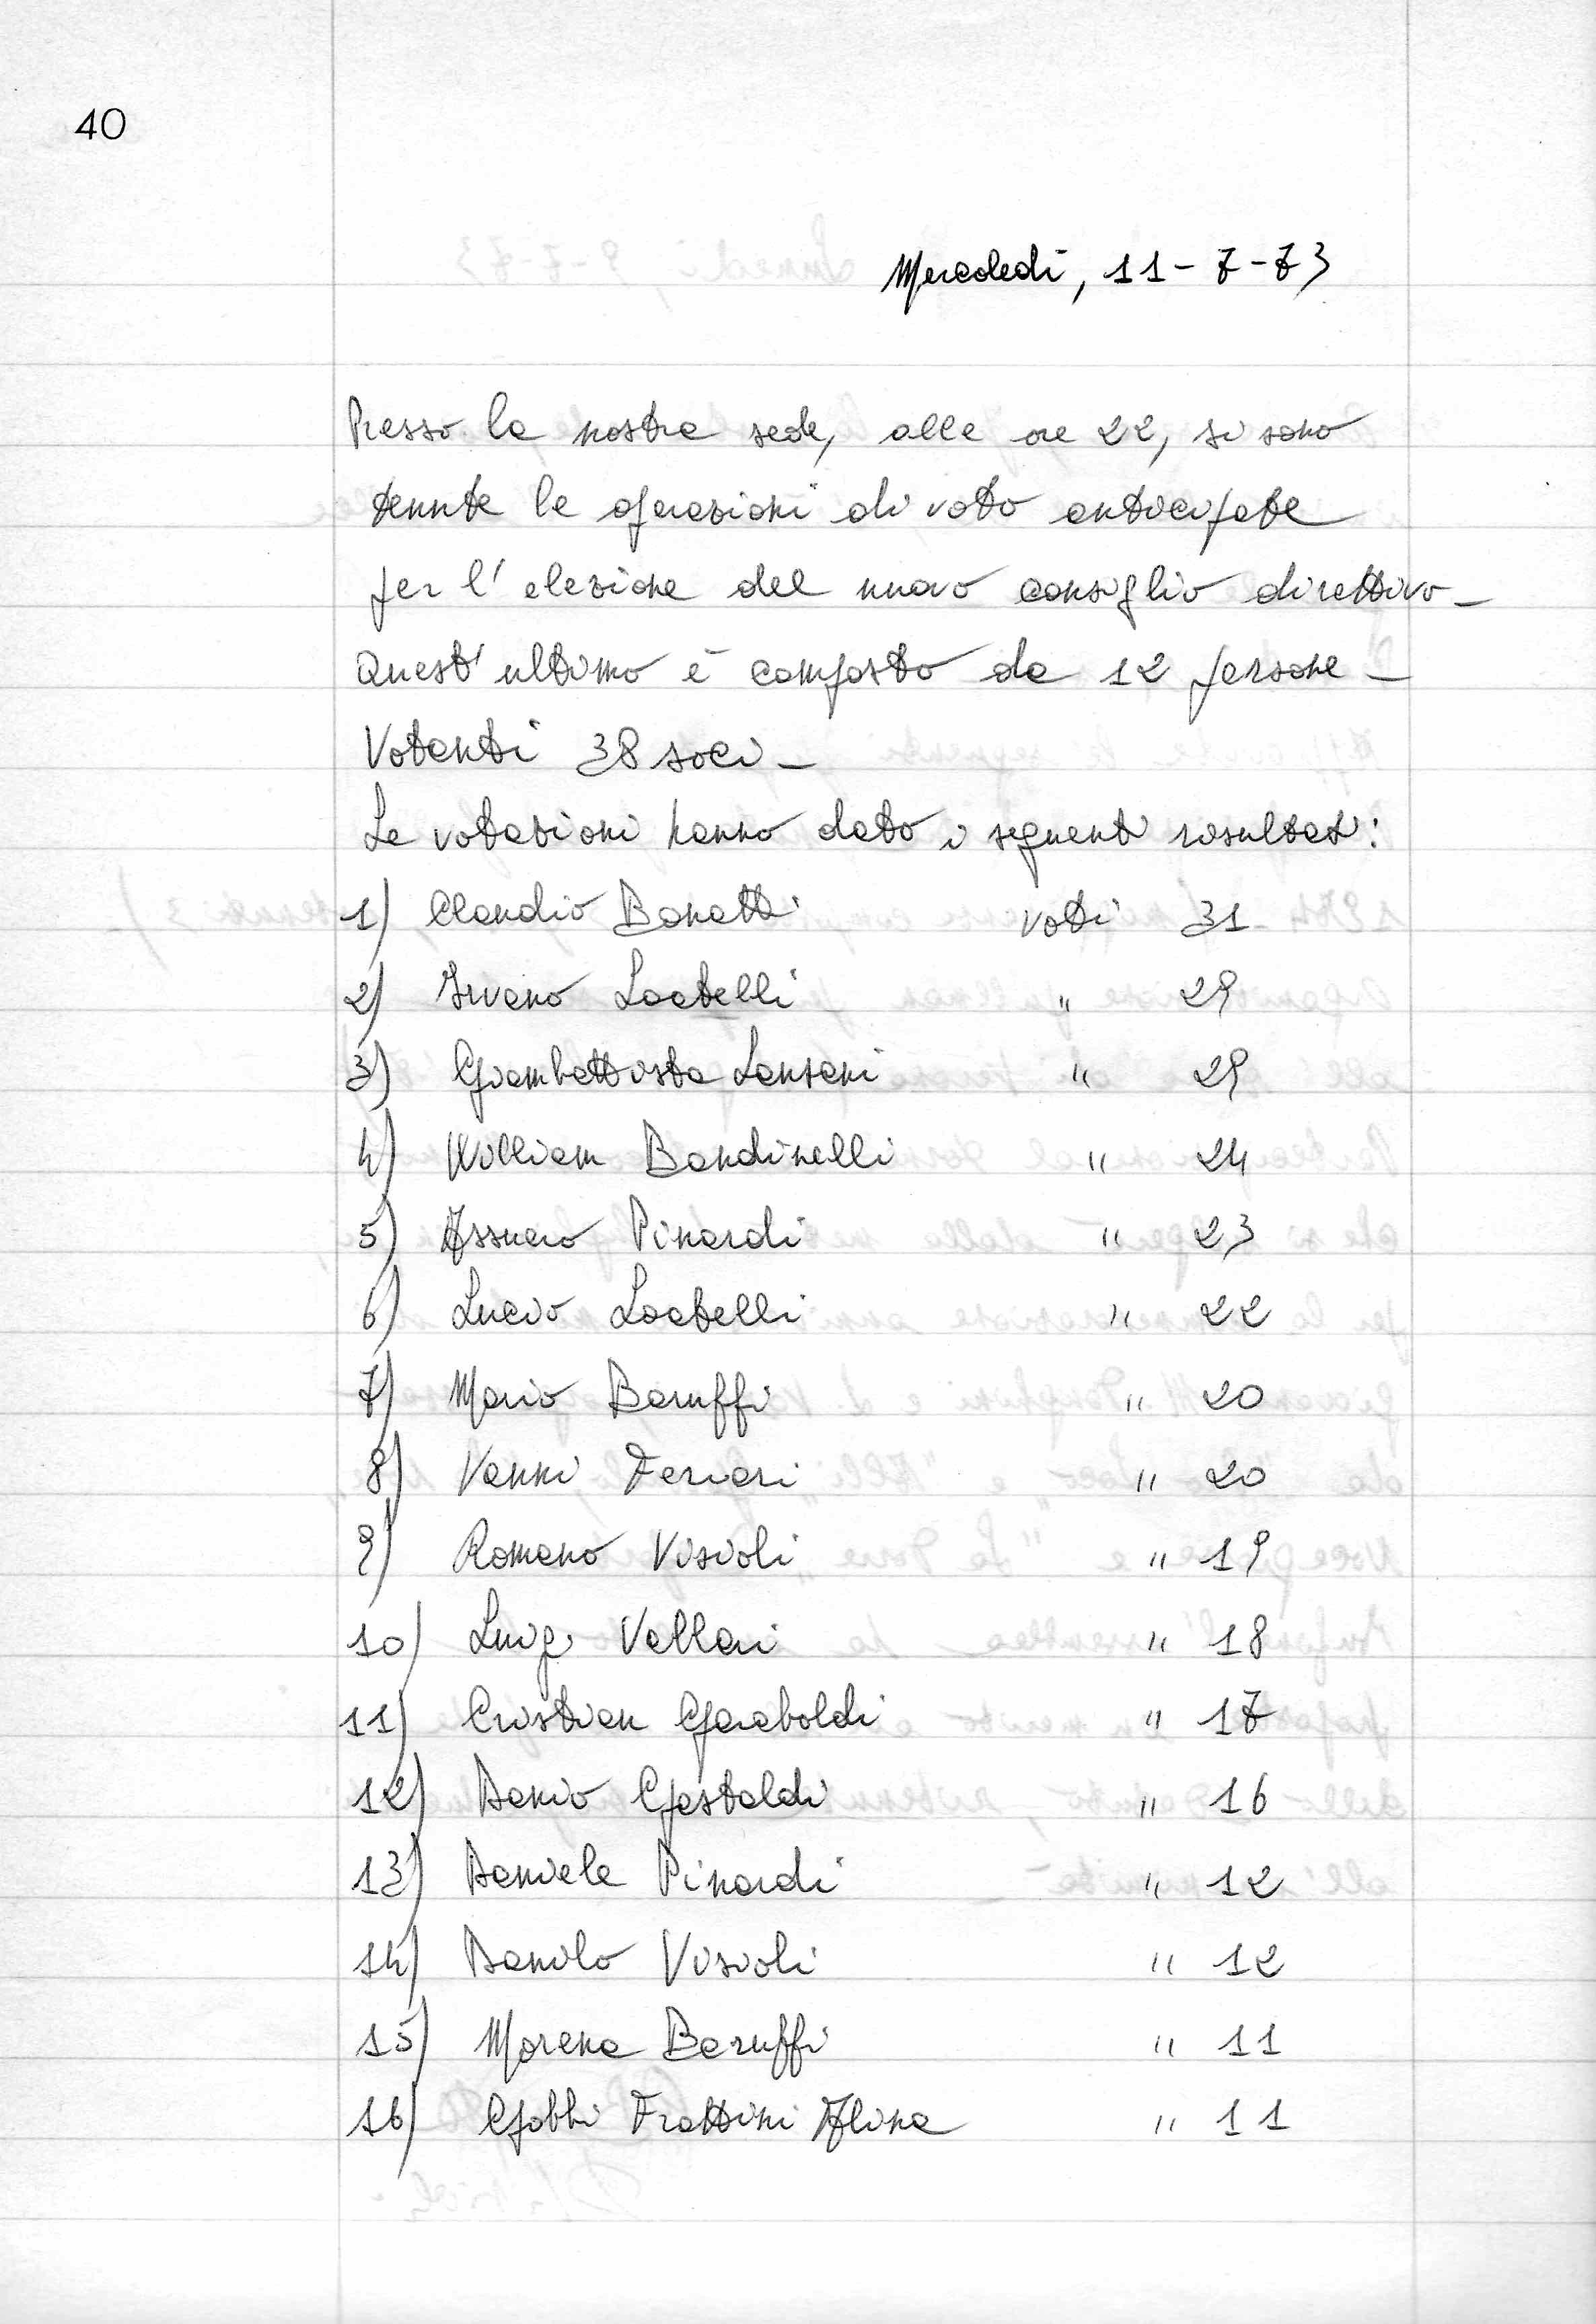 40
Mercoledì, 11-7-73
Presso la nostra sede, alle ore 22, si sono
tenute le operazioni di voto anticipate
per l'elezione del nuovo consiglio direttivo_
Quest'ultimo è composto da 12 persone_
Votanti 38 soci_
Le votazioni hanno dato i seguenti risultati:
1) Claudio Bonatti voti 31
2) Ivano Locatelli " 29
3) Giambattista Lanzani " 29
4) William Bandinelli " 24
5) Assuero Pinardi " 23
6) Lucio Locatelli " 22
7) Mario Baruffi " 20
8) Vanni Ferrari " 20
9) Romano Visioli " 19
10) Luigi Vallari " 18
11) Cristian Garaboldi " 17
12) Danio Gastaldi " 16
13) Daniela Pinardi " 12
14) Danilo Visioli " 12
15) Morena Baruffi " 11
16) Gobbi Frattini Alina " 11